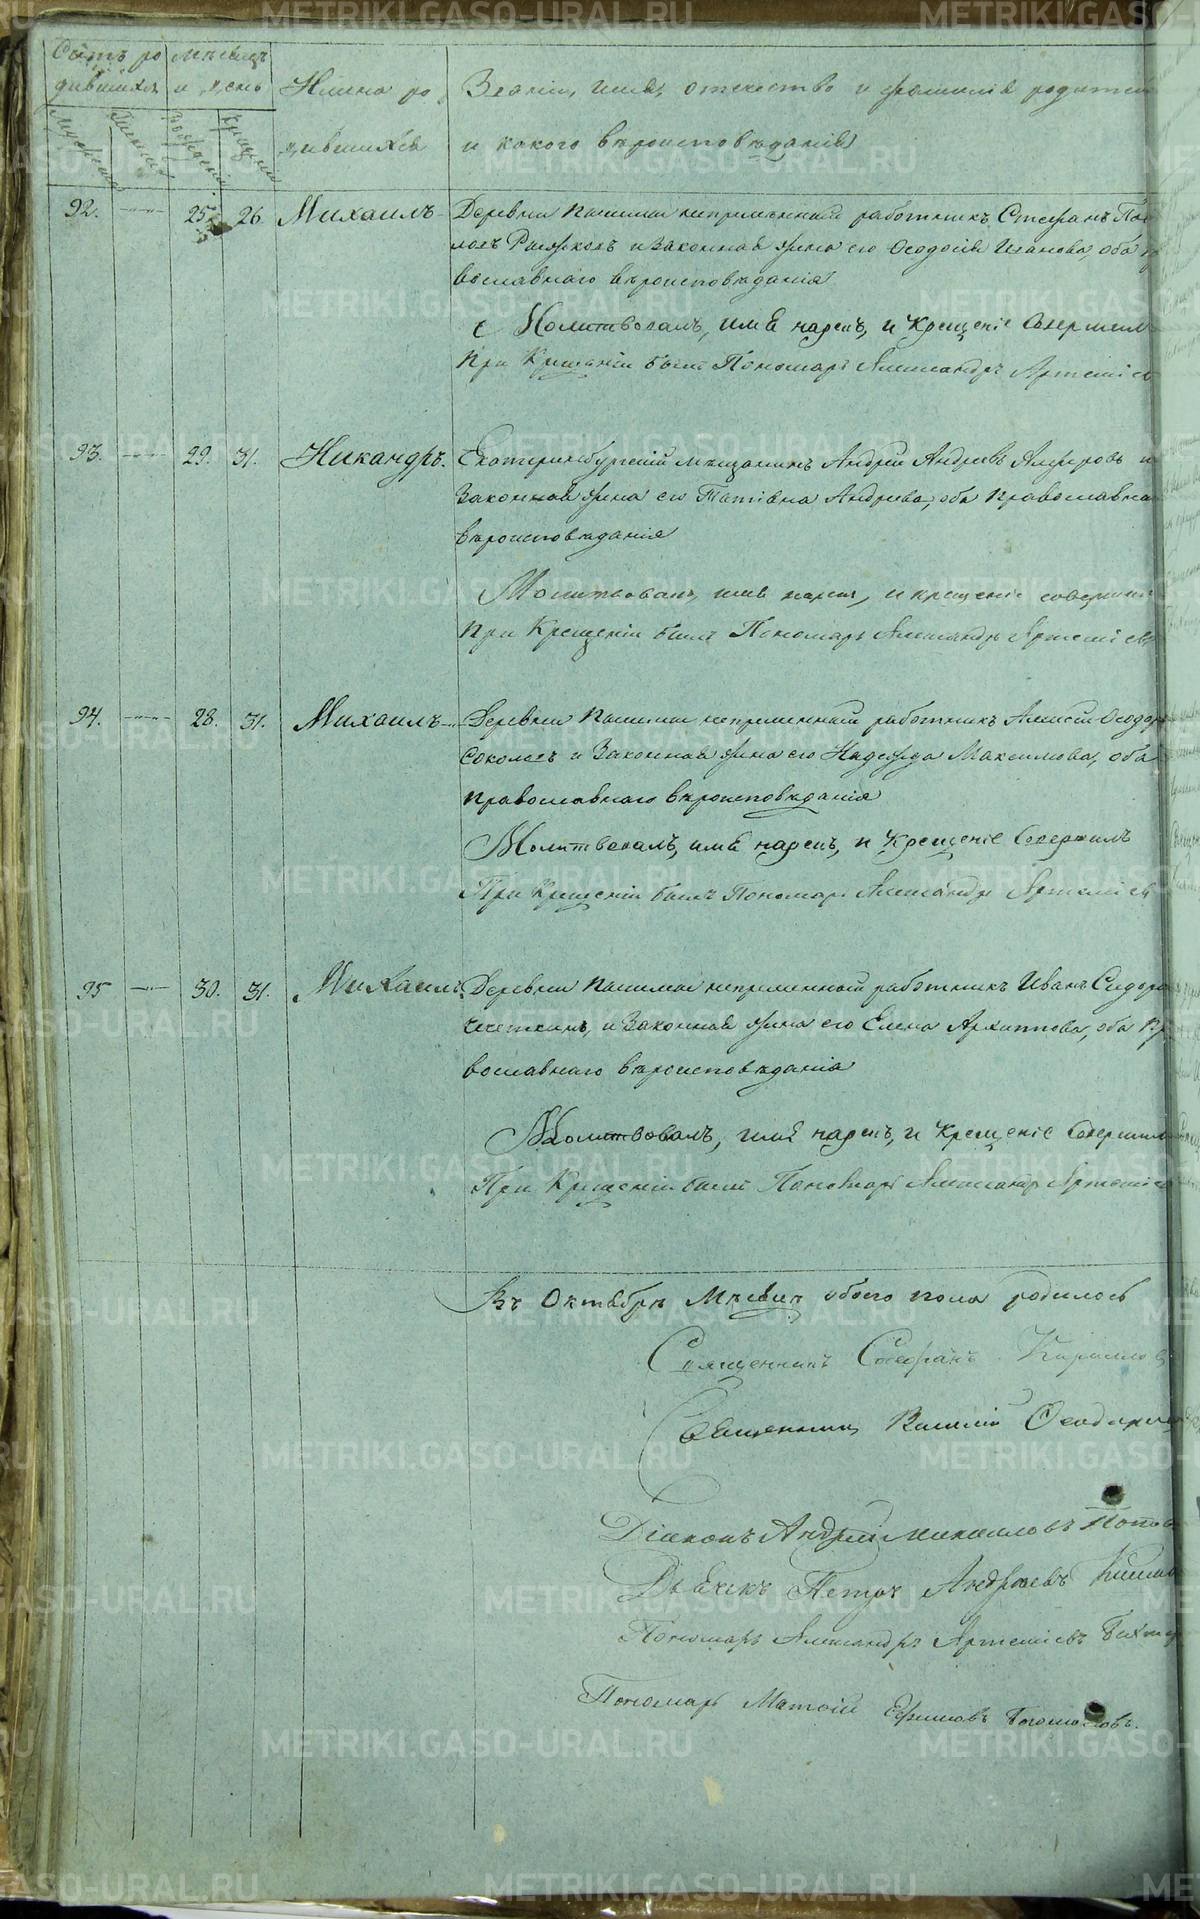 Счетъ ро Мѣсяцъ
дившихся и день Имена ро Званіе, имя, отечество и фамилія родител
дившихся и какого вѣроисповѣданія
92. 25. 26. Михаилъ Деревни Пашиной непременный работникъ Стефанъ
и законная жена его Ѳеодосія Иванова, оба
вославнаго вѣроисповѣданія
Молитвовалъ, имя нарекъ, и Крещеніе Совершил
При Крещеніи былъ Пономарь Александръ Артеміев
93. 29. 31. Никандръ. Екатеринбургскій мѣщанинъ Андрей Андреевъ и
Законная жена его Татіяна Андреева, оба Православна
вѣроисповѣданія
Молитвовалъ, имя нарекъ, и крещеніе совершил
При Крещеніи былъ Пономарь Александръ Артеміев
94. 28. 31. Михаилъ Деревни непременный работникъ Алексій Ѳеодор
Соколовъ и Законная жена его Надежда Максимова, оба
Православнаго вѣроисповѣданія
Молитвовалъ, имя нарекъ, и Крещеніе Совершилъ
При Крещеніи былъ Пономарь Александръ Артеміев
95 30. 31. Михаилъ Деревни непременной работникъ Иванъ Сидоро
и Законная жена его Елена Архиппова, оба пр
вославнаго вѣроисповѣданія
Молитвовалъ, имя нарекъ, и Крещеніе Совершил
При Крещеніи былъ Пономарь Александръ Артеміев
Въ Октябрѣ Мѣсяцѣ обоего пола родилось
Священникъ Стефанъ Кирилловъ
Священникъ Василій
Діаконъ Андрей Михаиловъ Попов
Дьячекъ Петръ Андреевъ
Пономарь Александръ Артеміевъ
Пономарь Матѳій Ефимовъ